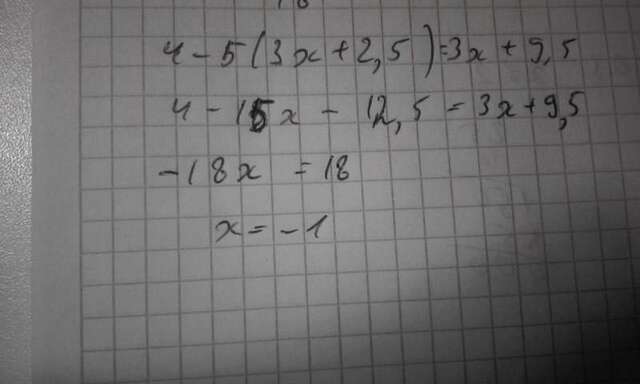 4 - 5 (3x + 2,5) = 3x + 9,5
4 - 15x - 12,5 = 3x + 9,5
-18x = 18
x = -1